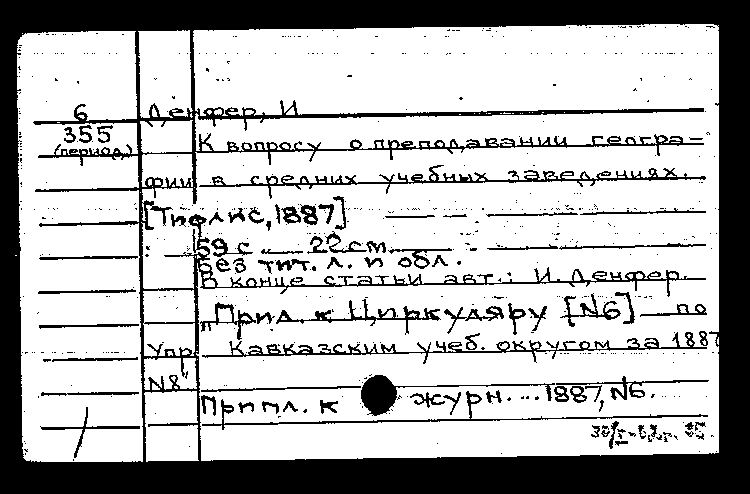 6 Денфер, И
355
(период.) К вопросу о преподавании геогра-
фии в средних учебных заведениях.
[Тифлис, 1887]
59 с. 22 см.
Без тит. л. и обл.
В конце статьи авт.: И. Денфер.
„Прил. к Циркуляру [N6] по
Упр. Кавказским учеб. округом за 1887
N8“
Припл. к журн. ... 1887, N6.